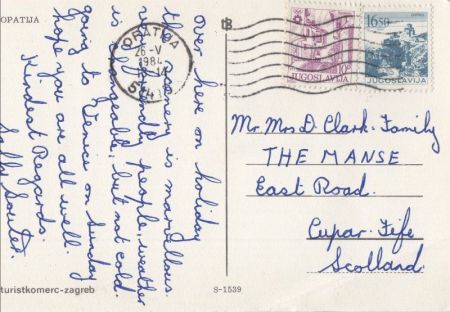 OPATIJA
Over here on holiday
the scenery is marvellous
friendly people, weather
is changeable, but not cold.
going to Venice on Sunday
hope you are all well.
Kindest Regards.
Sally Souter.
OPATIJA
26-V
1984
JUGOSLAVIJA
16.50
JUGOSLAVIJA
Mr. Mrs D. Clark. Family
THE MANSE
East Road.
Cupar. Fife
Scolland.
turistkomerc-zagreb
S-1539